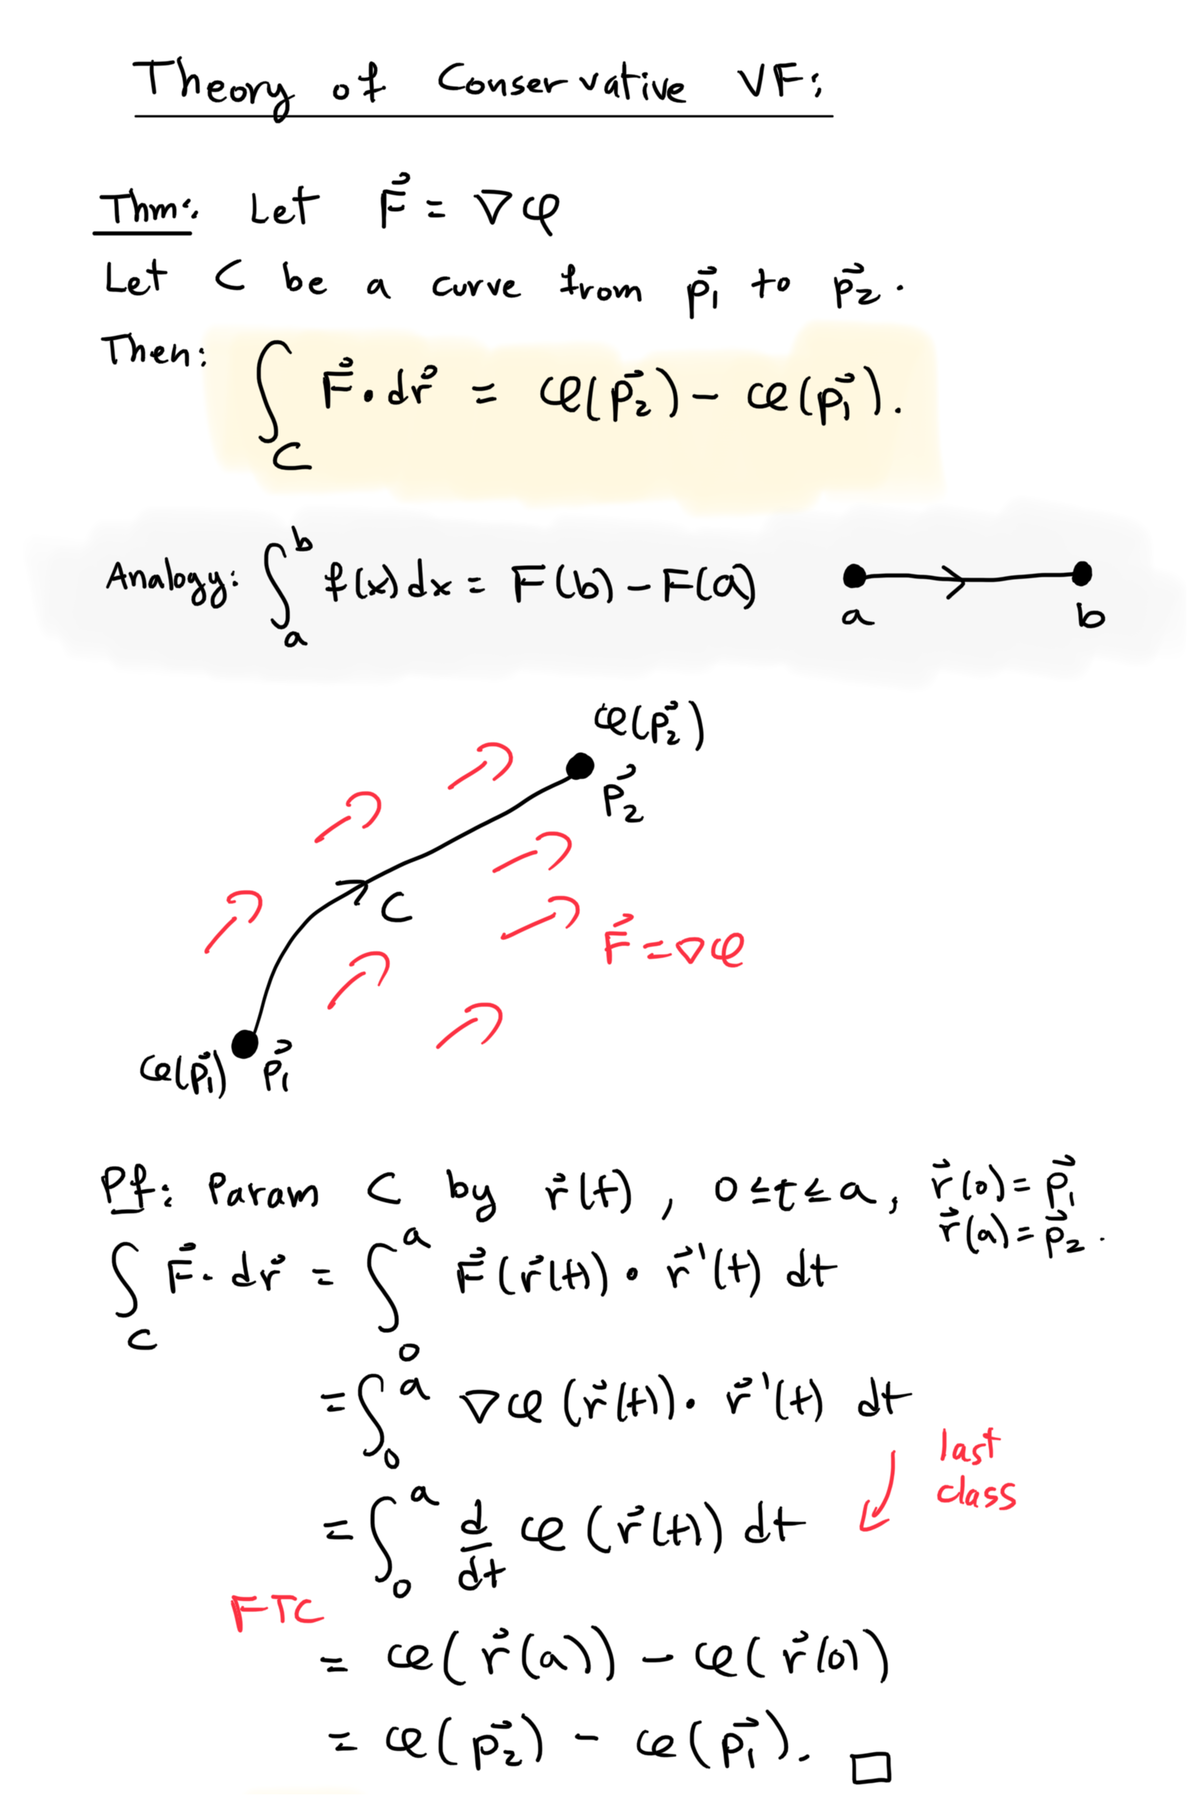 Theory of Conservative VF:
Thm: Let F⃗ = ∇φ
Let C be a curve from p⃗₁ to p⃗₂.
Then: ∫_C F⃗ · dr⃗ = φ(p⃗₂) − φ(p⃗₁).
Analogy: ∫_a^b f(x) dx = F(b) − F(a)
a b
φ(p⃗₂)
p⃗₂
C
F⃗ = ∇φ
φ(p⃗₁) p⃗₁
Pf: Param C by r⃗(t), 0 ≤ t ≤ a, r⃗(0) = p⃗₁
r⃗(a) = p⃗₂.
∫_C F⃗ · dr⃗ = ∫_0^a F⃗(r⃗(t)) · r⃗'(t) dt
= ∫_0^a ∇φ(r⃗(t)) · r⃗'(t) dt
last
class
= ∫_0^a d/dt φ(r⃗(t)) dt
FTC
= φ(r⃗(a)) − φ(r⃗(0))
= φ(p⃗₂) − φ(p⃗₁). □